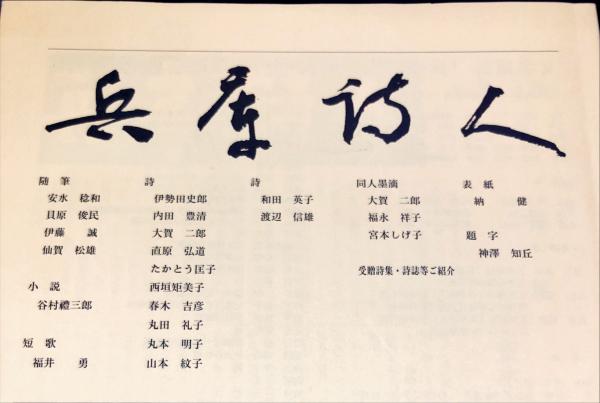 兵庫詩人
随筆
安水 稔和
貝原 俊民
伊藤 誠
仙賀 松雄
小説
谷村禮三郎
短歌
福井 勇
詩
伊勢田史郎
内田 豊清
大賀 二郎
直原 弘道
たかとう匡子
西垣矩美子
春木 吉彦
丸田 礼子
丸本 明子
山本 紋子
詩
和田 英子
渡辺 信雄
同人墨滴
大賀 二郎
福永 祥子
宮本しげ子
受贈詩集・詩誌等ご紹介
表紙
納 健
題字
神澤 知丘